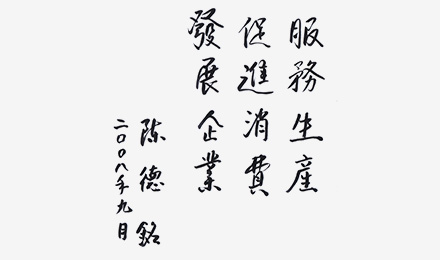 服務生産
促進消費
發展企業
陳德銘
二00八年九月